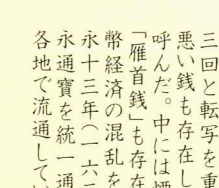 三回と転写を重
悪い銭も存在し
呼んだ。中には煙
「雁首銭」も存在
幣経済の混乱を
永十三年(一六三
永通寶を統一通
各地で流通してい